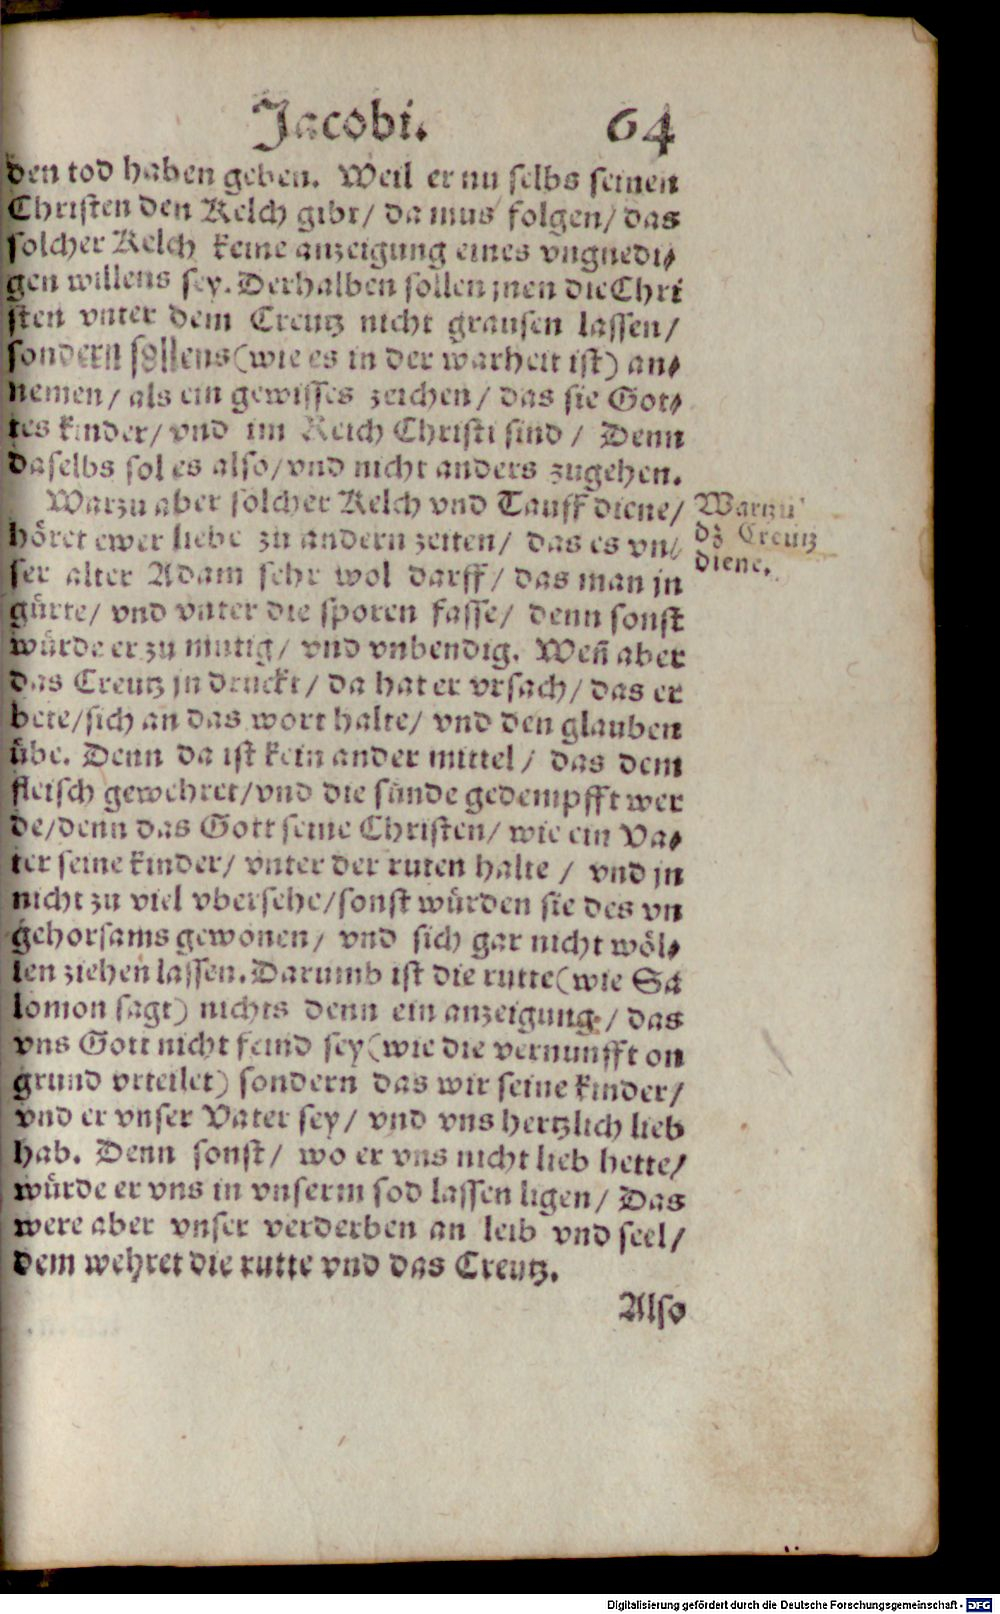 Jacobi. 64
den tod haben geben. Weil er nu selbs seinen
Christen den Kelch gibt/ da mus folgen/ das
solcher Kelch keine anzeigung eines vngnedi⸗
gen willens sey. Derhalben sollen jnen die Chri
sten vnter dem Creutz nicht grausen lassen/
sondern sollens (wie es in der warheit ist) an⸗
nemen/ als ein gewisses zeichen/ das sie Got⸗
tes kinder/ vnd im Reich Christi sind/ Denn
daselbs sol es also/ vnd nicht anders zugehen.
Warzu aber solcher Kelch vnd Tauff diene/
höret ewer liebe zu andern zeiten/ das es vn⸗
ser alter Adam sehr wol darff/ das man jn
gürte/ vnd vnter die sporen fasse/ denn sonst
würde er zu mutig/ vnd vnbendig. Weñ aber
das Creutz jn drückt/ da hat er vrsach/ das er
bete/ sich an das wort halte/ vnd den glauben
übe. Denn da ist kein ander mittel/ das dem
fleisch gewehret/ vnd die sünde gedempfft wer
de/ denn das Gott seine Christen/ wie ein Va⸗
ter seine kinder/ vnter der ruten halte/ vnd jn
nicht zu viel vbersehe/ sonst würden sie des vn
gehorsams gewonen/ vnd sich gar nicht wöl⸗
len ziehen lassen. Darumb ist die rutte (wie Sa
lomon sagt) nichts denn ein anzeigung/ das
vns Gott nicht feind sey (wie die vernunfft on
grund vrteilet) sondern das wir seine kinder/
vnd er vnser Vater sey/ vnd vns hertzlich lieb
hab. Denn sonst/ wo er vns nicht lieb hette/
würde er vns in vnserm sod lassen ligen/ Das
were aber vnser verderben an leib vnd seel/
dem wehret die rutte vnd das Creutz.
Also
Warzu
dz Creutz
diene.
Digitalisierung gefördert durch die Deutsche Forschungsgemeinschaft - DFG